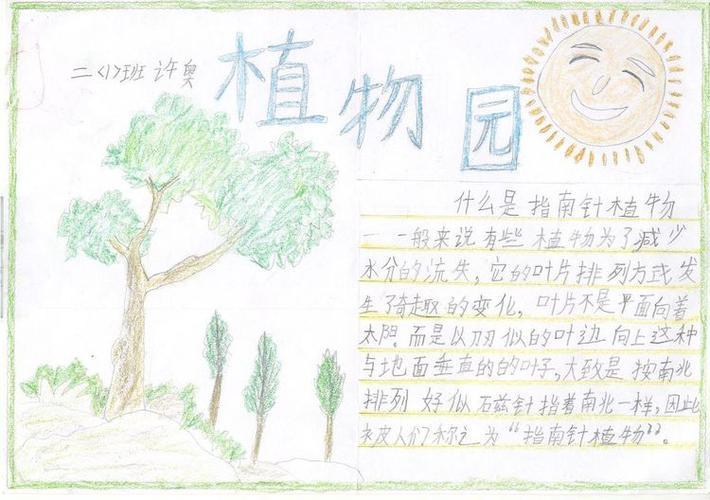 二〈1〉班 许奥
植物园
什么是指南针植物
一一般来说有些植物为了减少
水分的流失，它的叶片排列方式发
生了奇趣的变化，叶片不是平面向着
太阳。而是以刀似的叶边向上这种
与地面垂直的的叶子，大致是按南北
排列好似石兹针指着南北一样，因此
被人们称之为“指南针植物”。